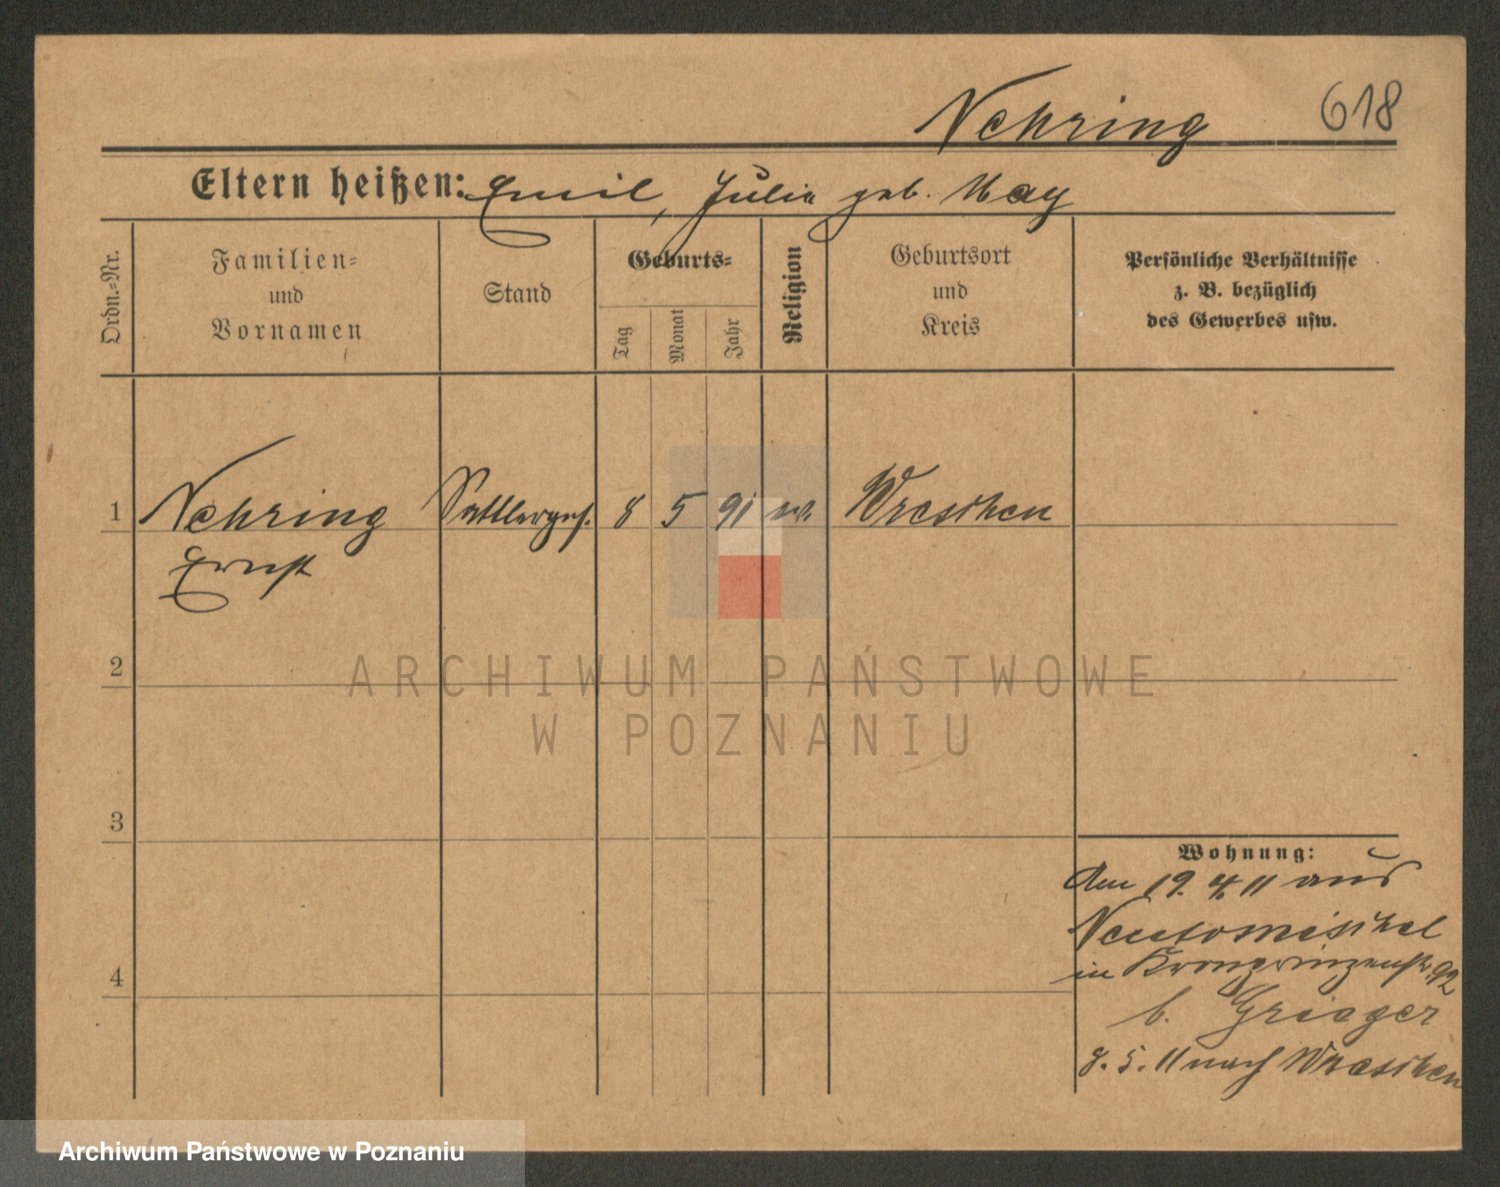 Nehring 618
Eltern heißen: Emil, Julia geb. May
Ordn.-Nr.
Familien-
und
Vornamen
Stand
Geburts-
Tag
Monat
Jahr
Religion
Geburtsort
und
Kreis
Persönliche Verhältnisse
z. B. bezüglich
des Gewerbes usw.
1 Nehring Sattlerges. 8 5 91 ev. Wreschen
Ernst
2
3
4
Wohnung:
Am 19. 4. 11 aus
Neutomischel
in Kronprinzenstr. 92
b. Grieger
8. 5. 11 nach Wreschen
ARCHIWUM PAŃSTWOWE
W POZNANIU
Archiwum Państwowe w Poznaniu